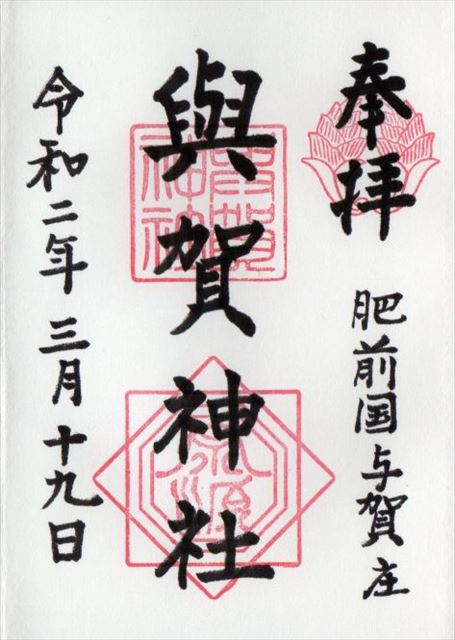 奉拝
肥前国与賀庄
與賀神社
令和二年三月十九日